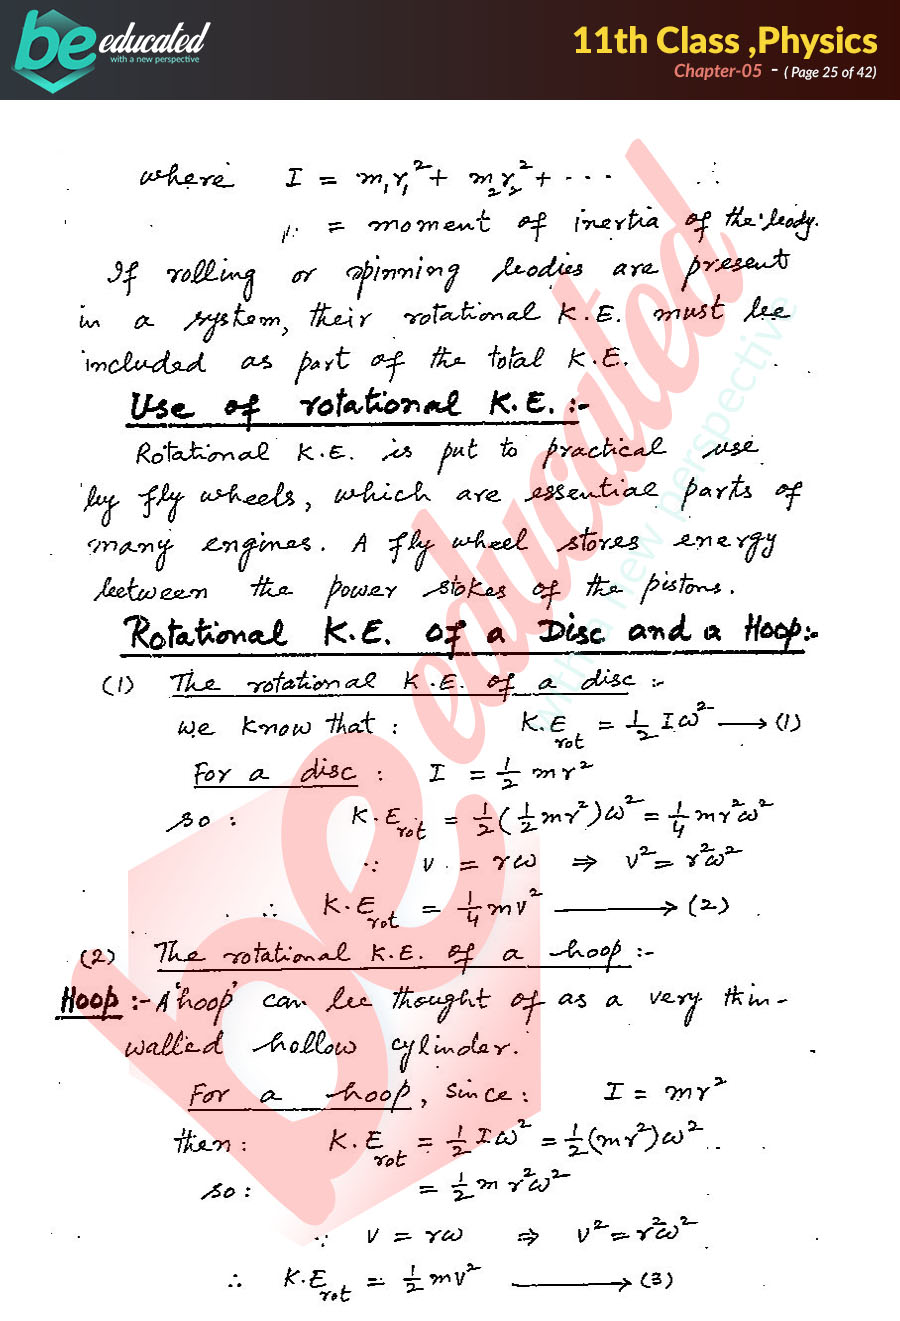 be educated
with a new perspective
11th Class ,Physics
Chapter-05 - ( Page 25 of 42)
where I = m₁r₁² + m₂r₂² + ...
= moment of inertia of the body.
If rolling or spinning bodies are present
in a system, their rotational K.E. must be
included as part of the total K.E.
Use of rotational K.E. :-
Rotational K.E. is put to practical use
by fly wheels, which are essential parts of
many engines. A fly wheel stores energy
between the power stokes of the pistons.
Rotational K.E. of a Disc and a Hoop:-
(1) The rotational K.E. of a disc :-
we know that : K.E_rot = 1/2 Iω² → (1)
For a disc : I = 1/2 mr²
so : K.E_rot = 1/2 (1/2 mr²)ω² = 1/4 mr²ω²
∵ v = rω ⇒ v² = r²ω²
∴ K.E_rot = 1/4 mv² → (2)
(2) The rotational K.E. of a hoop :-
Hoop :- A 'hoop' can be thought of as a very thin-
walled hollow cylinder.
For a hoop, since : I = mr²
then : K.E_rot = 1/2 Iω² = 1/2 (mr²)ω²
so : = 1/2 m r²ω²
∵ v = rω ⇒ v² = r²ω²
∴ K.E_rot = 1/2 mv² → (3)
be educated
with a new perspective